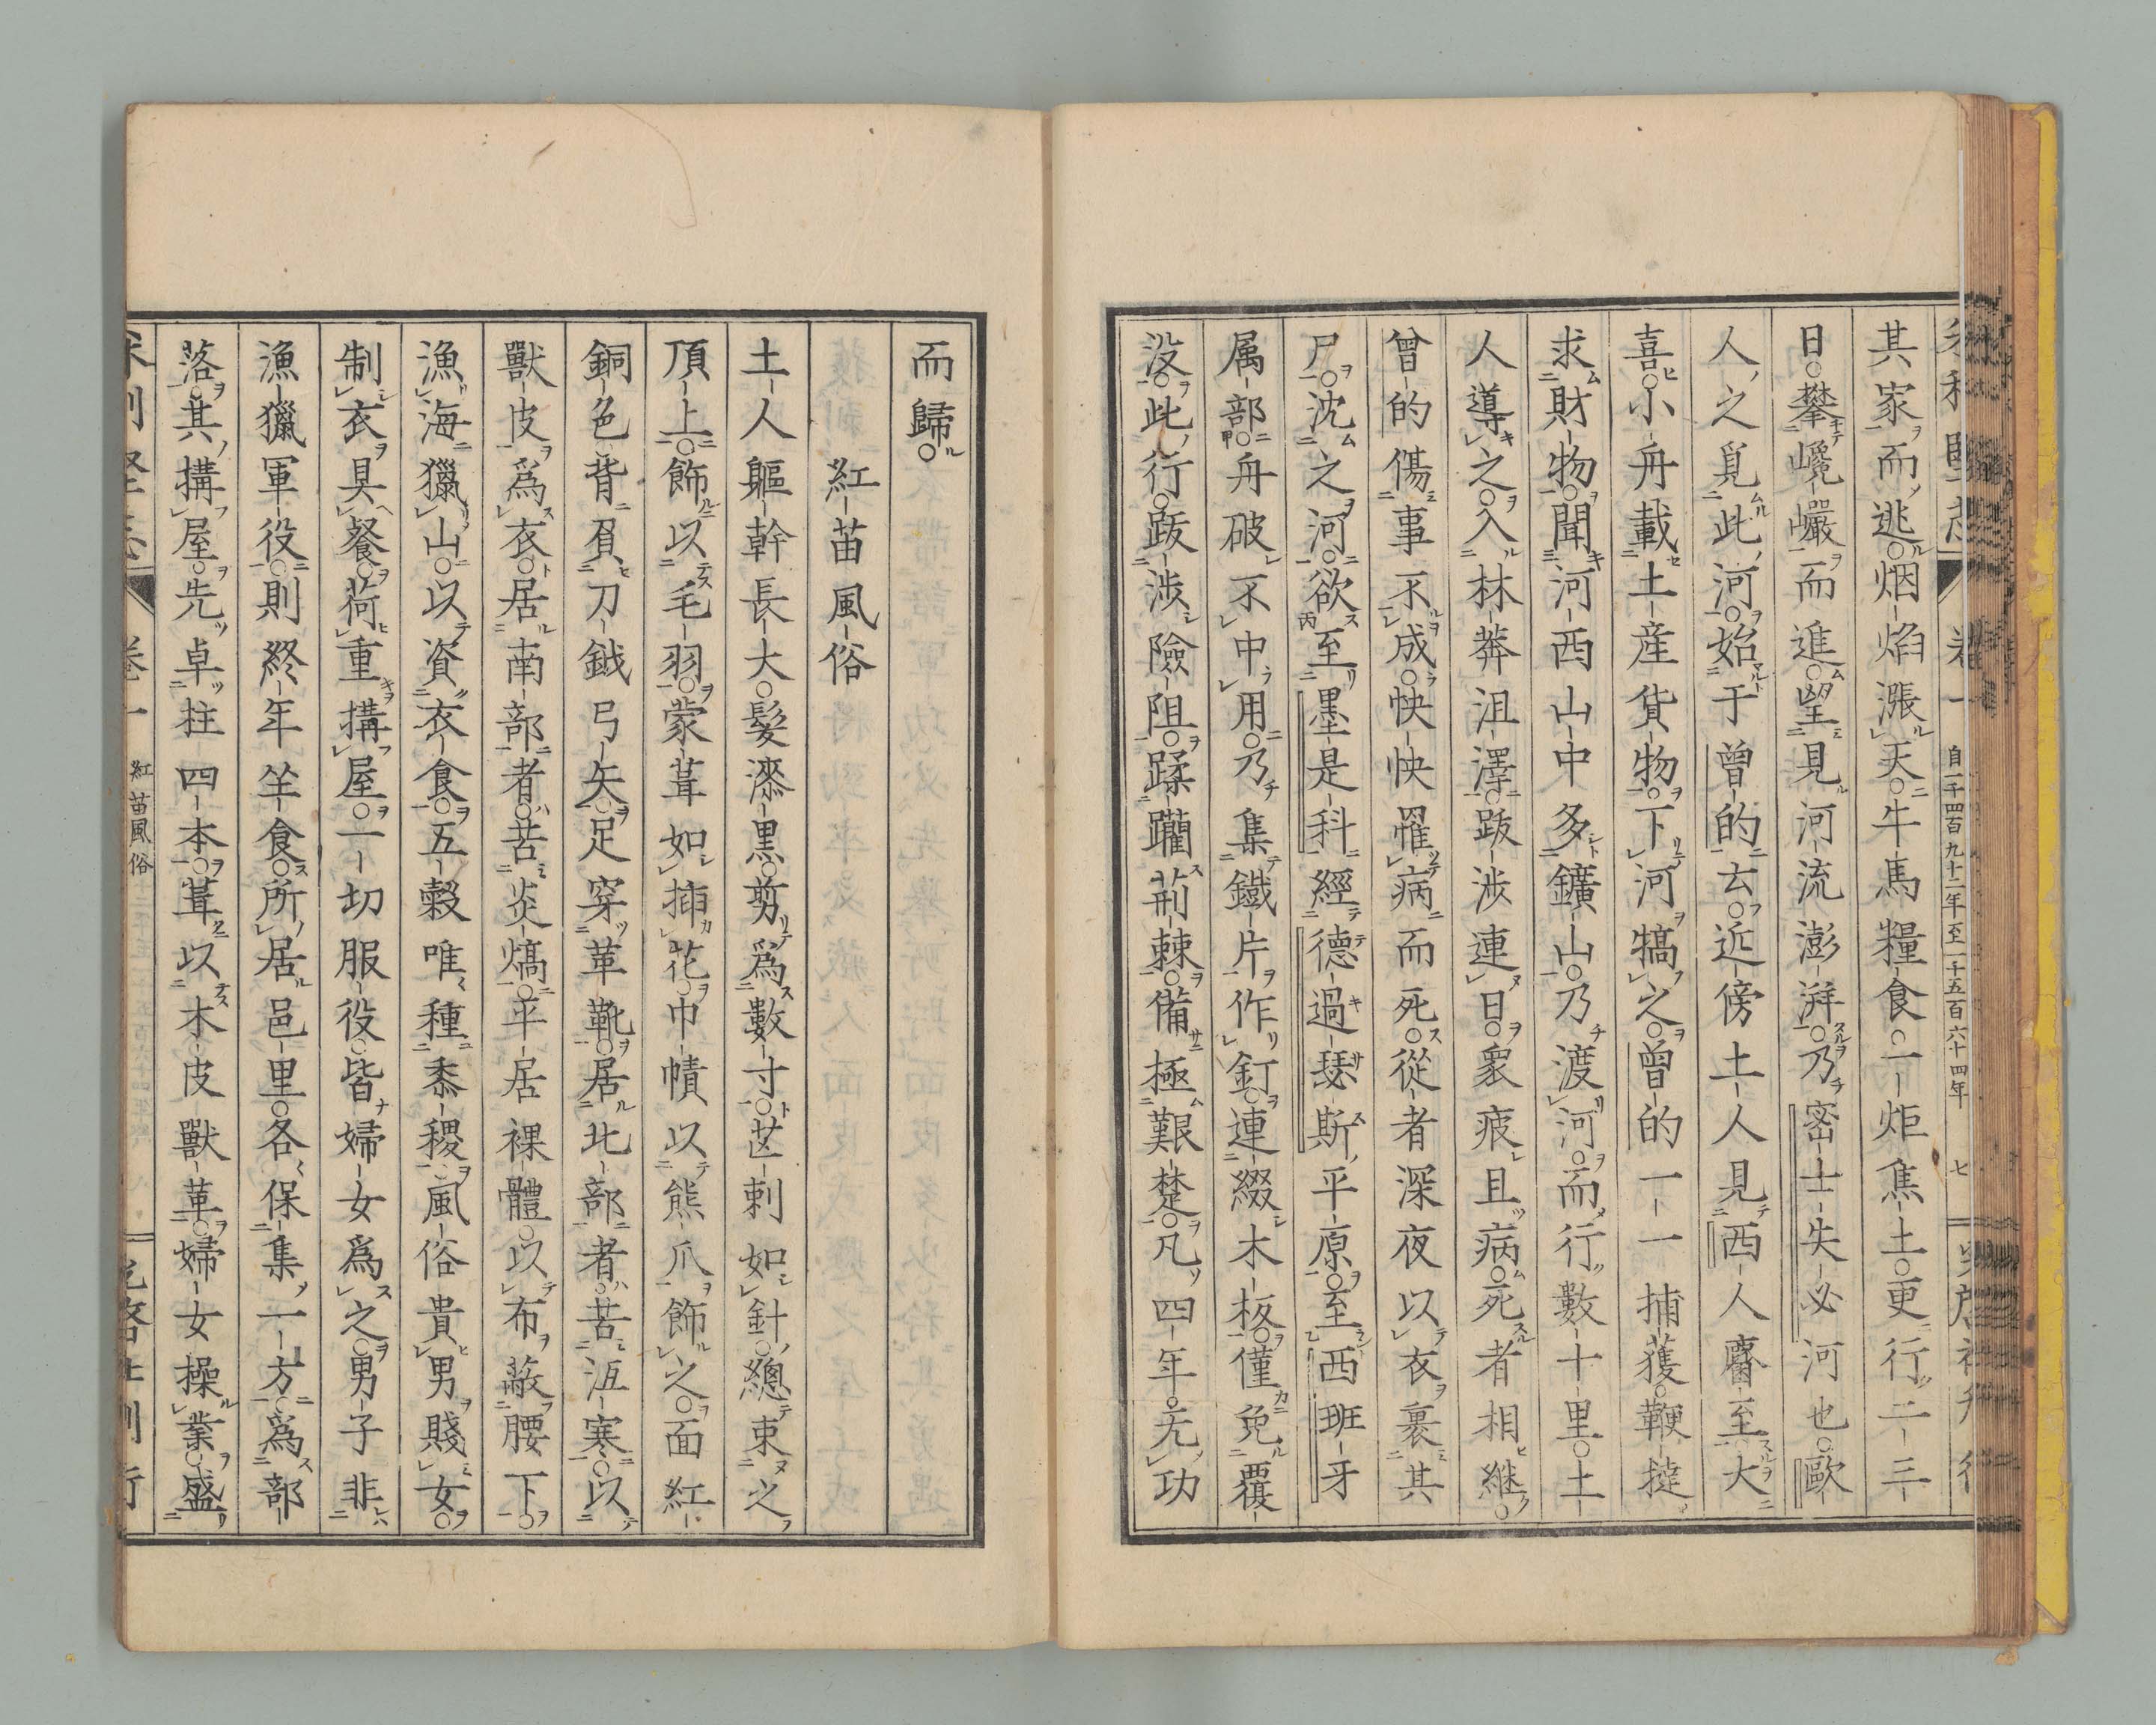 自一千四百九十二年至一千五百六十四年 七
其家而逃烟焰漲天牛馬糧食一炬焦土更行二三
日攀巉巖而進望見河流澎湃乃密士失必河也歐
人之覓此河始于曾的云近傍土人見西人齎至大
喜小舟載土産貨物下河犒之曾的一一捕獲鞭撻
求財物聞河西山中多鑛山乃渡河而行數十里土
人導之入林莽沮澤跋渉連日衆疲且病死者相継
曾的傷事不成怏怏罹病而死從者深夜以衣裹其
尸沈之河欲至墨是科經德過瑟斯平原至西班牙
属部舟破不中用乃集鐵片作釘連綴木板僅免覆
没此行跋渉險阻蹂躪荊棘備極艱楚凡四年无功
而歸
紅苗風俗
土人軀幹長大髮漆黒剪爲數寸芒刺如針總束之
頂上飾以毛羽蒙茸如揷花巾幘以熊爪飾之面紅
銅色背負刀鉞弓矢足穿革靴居北部者苦沍寒以
獸皮爲衣居南部者苦炎熇平居裸體以布蔽腰下
漁海獵山以資衣食五穀唯種黍稷風俗貴男賤女
制衣具餐荷重搆屋一切服役皆婦女爲之男子非
漁獵軍役則終年坐食所居邑里各保集一方爲部
落其搆屋先卓柱四本葺以木皮獸革婦女操業盛
卷一 紅苗風俗